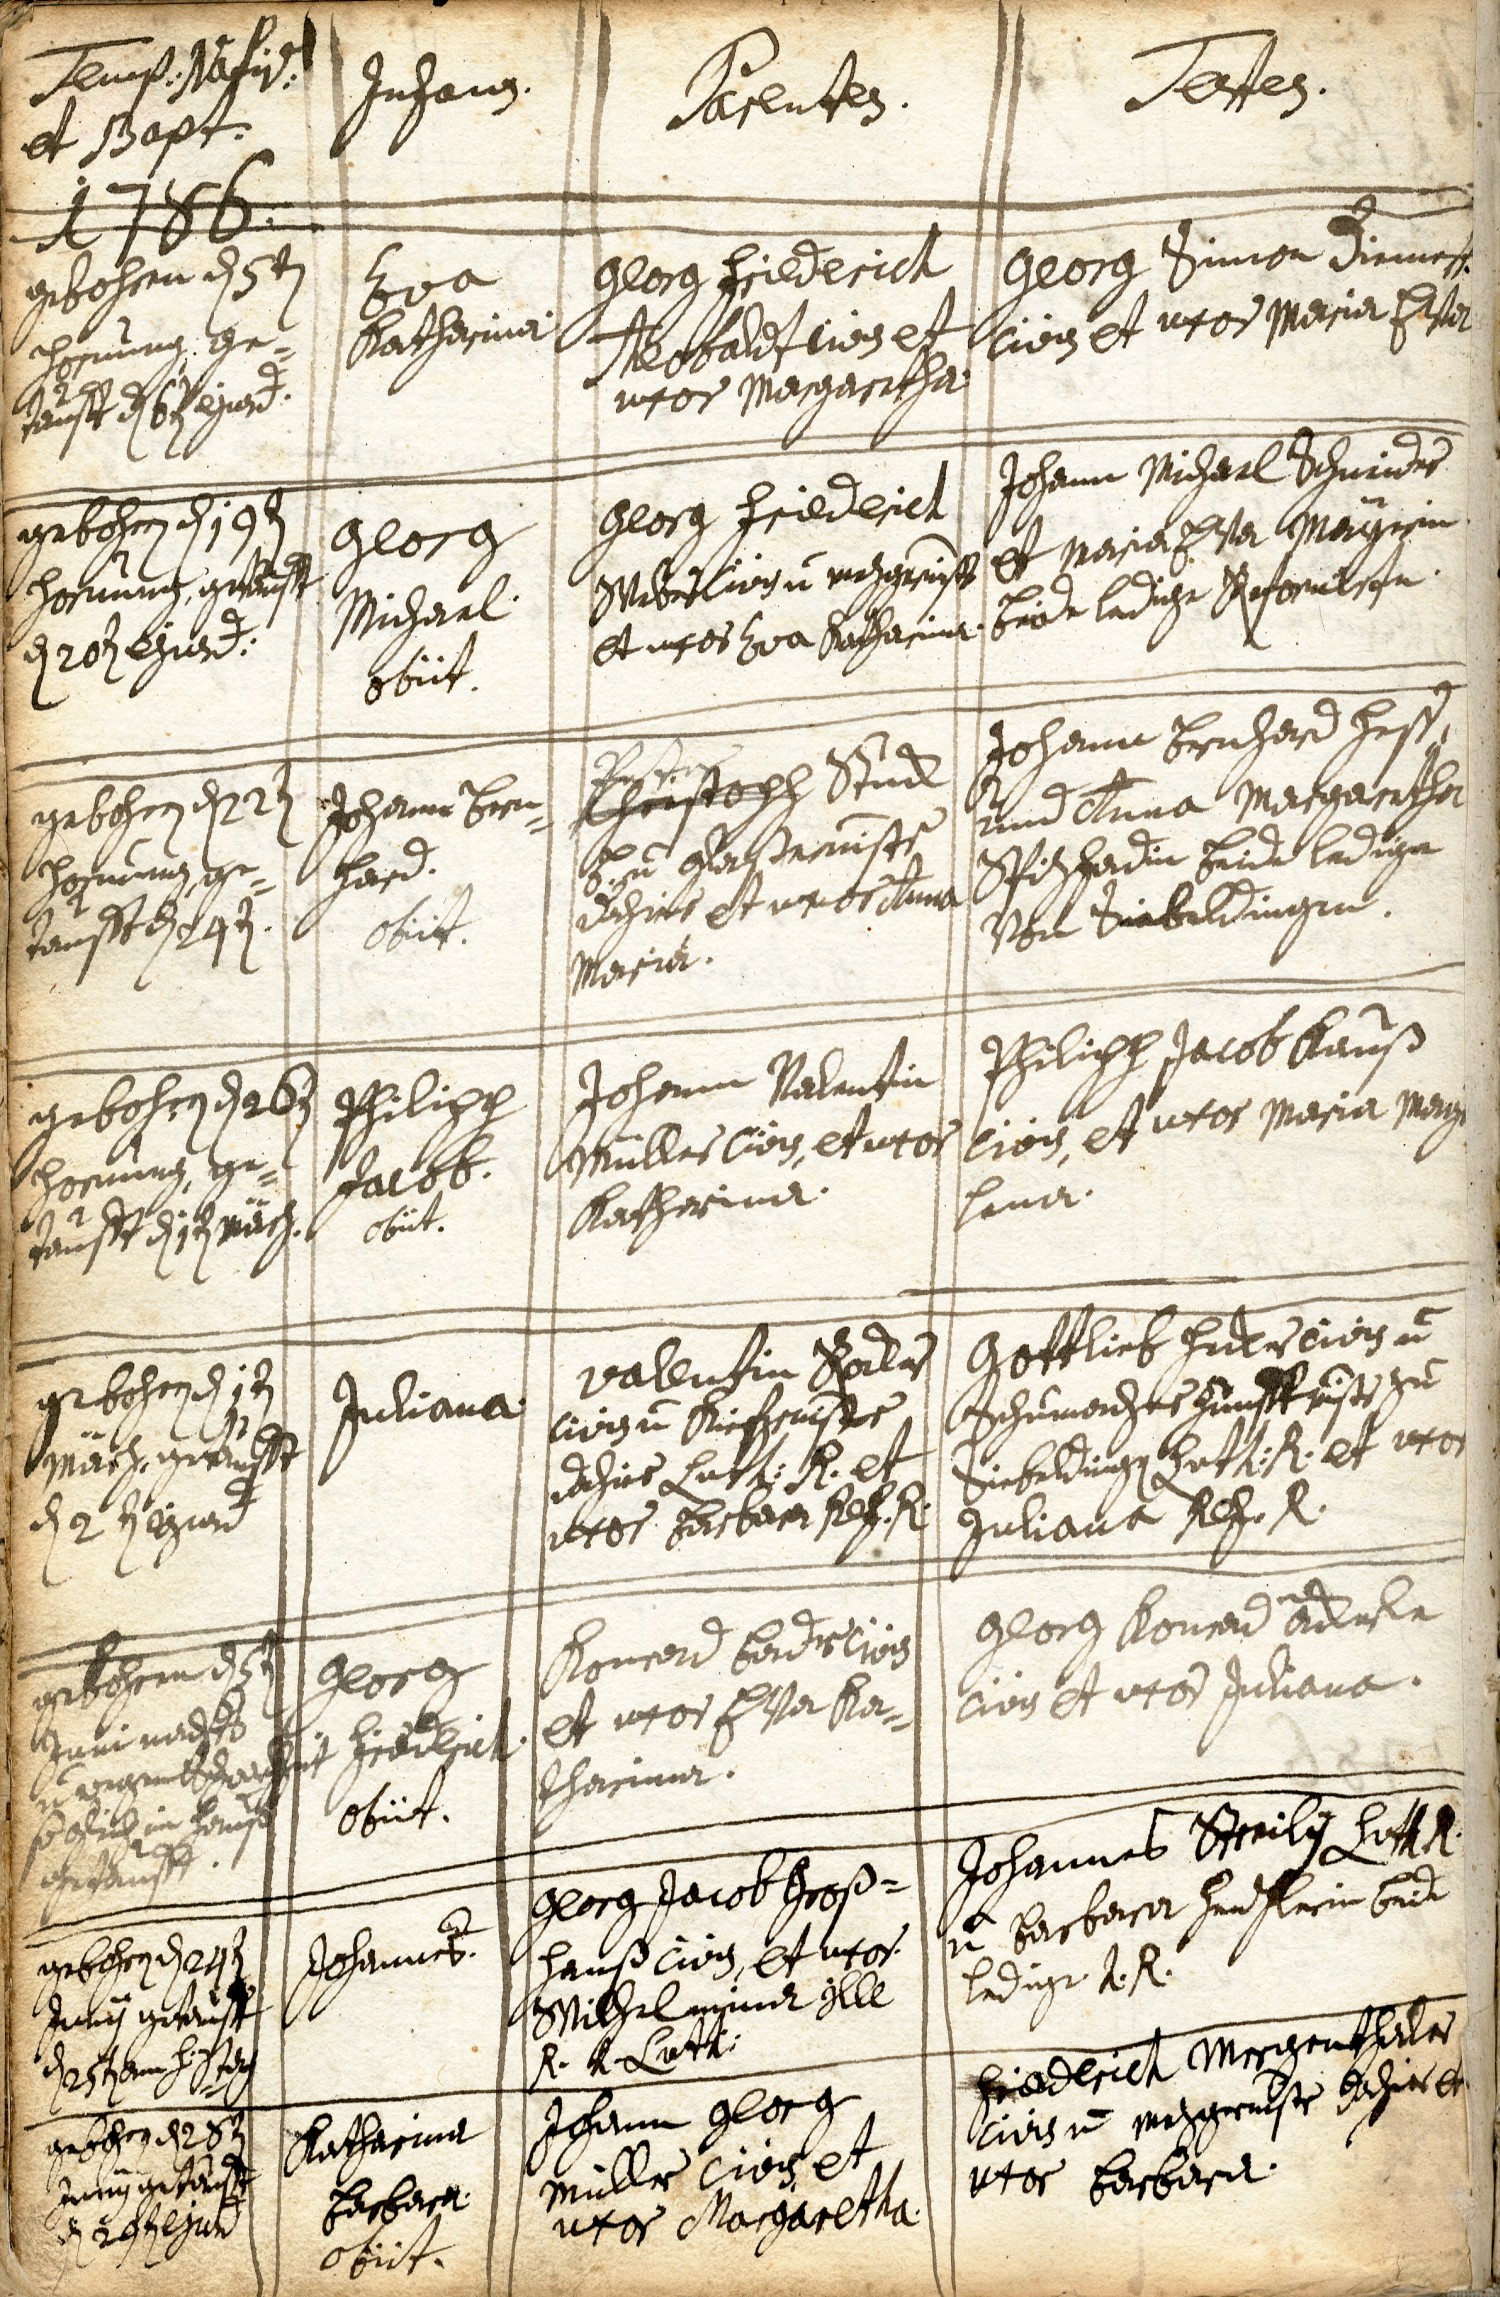 Temp: Nativ:
et Bapt:
1786.
Infans.
Parentes.
Testes.
gebohren d 5t
Hornung, ge-
taufft d 6t ejusd.
Eva
Katharina
Georg Friederich
Theobaldt civis et
uxor Margaretha.
Georg Simon
civis et uxor Maria Eva
gebohren d 19t
Hornung, getaufft
d 20t ejusd:
Georg
Michael.
obiit.
Georg Friederich
Weber civis u
et uxor Eva Katharina.
Johann Michael Schneider
et Maria Eva
beide ledige Reformirte.
gebohren d 22t
Hornung, ge-
taufft d 24t.
Johann Bern-
hard.
obiit.
Christoph
B. u
dahier et uxor Anna
Maria.
Johann Bernhard Hess,
und Anna Margaretha
beide ledige
von Siebeldingen.
gebohren d 26t
Hornung, ge-
taufft d 1t März.
Philipp
Jacob.
obiit.
Johann Valentin
Müller civis, et uxor
Katharina.
Philipp Jacob Kauß
civis, et uxor Maria Magd
lena.
gebohren d 1t
März, getaufft
d 2t ejusd
Juliana.
Valentin
civis u
dahier Luth: R. et
uxor Barbara Ref. R.
Gottlieb civis u
Schumacher zu
Siebeldingen Luth: R. et uxor
Juliana Ref. R.
gebohren d 5t
Juni nachts
u wegen Schwachheit
sogleich im Hauß
getaufft.
Georg
Friedrich.
obiit.
Konrad civis
et uxor Eva Ka-
tharina.
Georg Konrad
civis et uxor Juliana.
gebohren d 24t
Junij getaufft
d 25t
Johannes.
Georg Jacob Groß-
hanß civis, et uxor.
Wilhelmina ille
R. R. Luth:
Johannes Luth R.
u Barbara beide
ledige R. R.
gebohren d 28t
Junij getaufft
d 29t ejusd
Katharina
Barbara.
obiit.
Johann Georg
Müller civis, et
uxor Margaretha.
Friederich Mergenthaler
civis u dahier et
uxor Barbara.